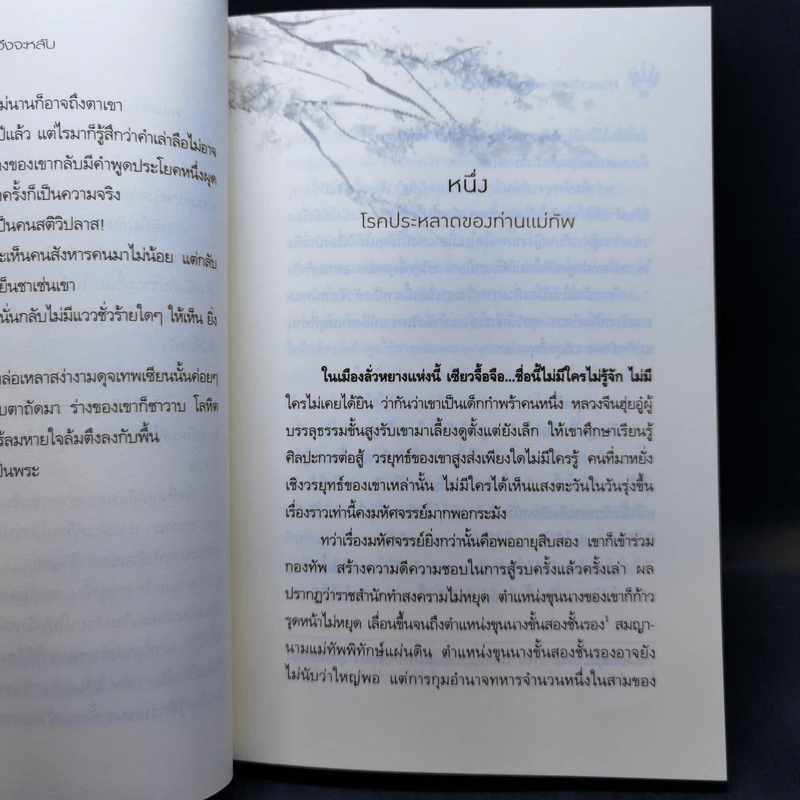 จึงจะหลับ
ม่นานก็อาจถึงตาเขา
ปีแล้ว แต่ไรมาก็รู้สึกว่าคำเล่าลือไม่อาจ
างของเขากลับมีคำพูดประโยคหนึ่งผุด
งครั้งก็เป็นความจริง
ป็นคนสติวิปลาส!
ะเห็นคนสังหารคนมาไม่น้อย แต่กลับ
ย็นชาเช่นเขา
นั่นกลับไม่มีแววชั่วร้ายใดๆ ให้เห็น ยิ่ง
หล่อเหลาสง่างามดุจเทพเซียนนั้นค่อยๆ
บตาถัดมา ร่างของเขาก็ชาวาบ โลหิต
ร้ลมหายใจล้มตึงลงกับพื้น
ป็นพระ
หนึ่ง
โรคประหลาดของท่านแม่ทัพ
ในเมืองลั่วหยางแห่งนี้ เซียวจื้อจือ...ชื่อนี้ไม่มีใครไม่รู้จัก ไม่มี
ใครไม่เคยได้ยิน ว่ากันว่าเขาเป็นเด็กกำพร้าคนหนึ่ง หลวงจีนฮุ่ยอู้ผู้
บรรลุธรรมขั้นสูงรับเขามาเลี้ยงดูตั้งแต่ยังเล็ก ให้เขาศึกษาเรียนรู้
ศิลปะการต่อสู้ วรยุทธ์ของเขาสูงส่งเพียงใดไม่มีใครรู้ คนที่มาหยั่ง
เชิงวรยุทธ์ของเขาเหล่านั้น ไม่มีใครได้เห็นแสงตะวันในวันรุ่งขึ้น
เรื่องราวเท่านี้คงมหัศจรรย์มากพอกระมัง
ทว่าเรื่องมหัศจรรย์ยิ่งกว่านั้นคือพออายุสิบสอง เขาก็เข้าร่วม
กองทัพ สร้างความดีความชอบในการสู้รบครั้งแล้วครั้งเล่า ผล
ปรากฏว่าราชสำนักทำสงครามไม่หยุด ตำแหน่งขุนนางของเขาก็ก้าว
รุดหน้าไม่หยุด เลื่อนขึ้นจนถึงตำแหน่งขุนนางขั้นสองชั้นรอง¹ สมญา-
นามแม่ทัพพิทักษ์แผ่นดิน ตำแหน่งขุนนางขั้นสองชั้นรองอาจยัง
ไม่นับว่าใหญ่พอ แต่การกุมอำนาจทหารจำนวนหนึ่งในสามของ